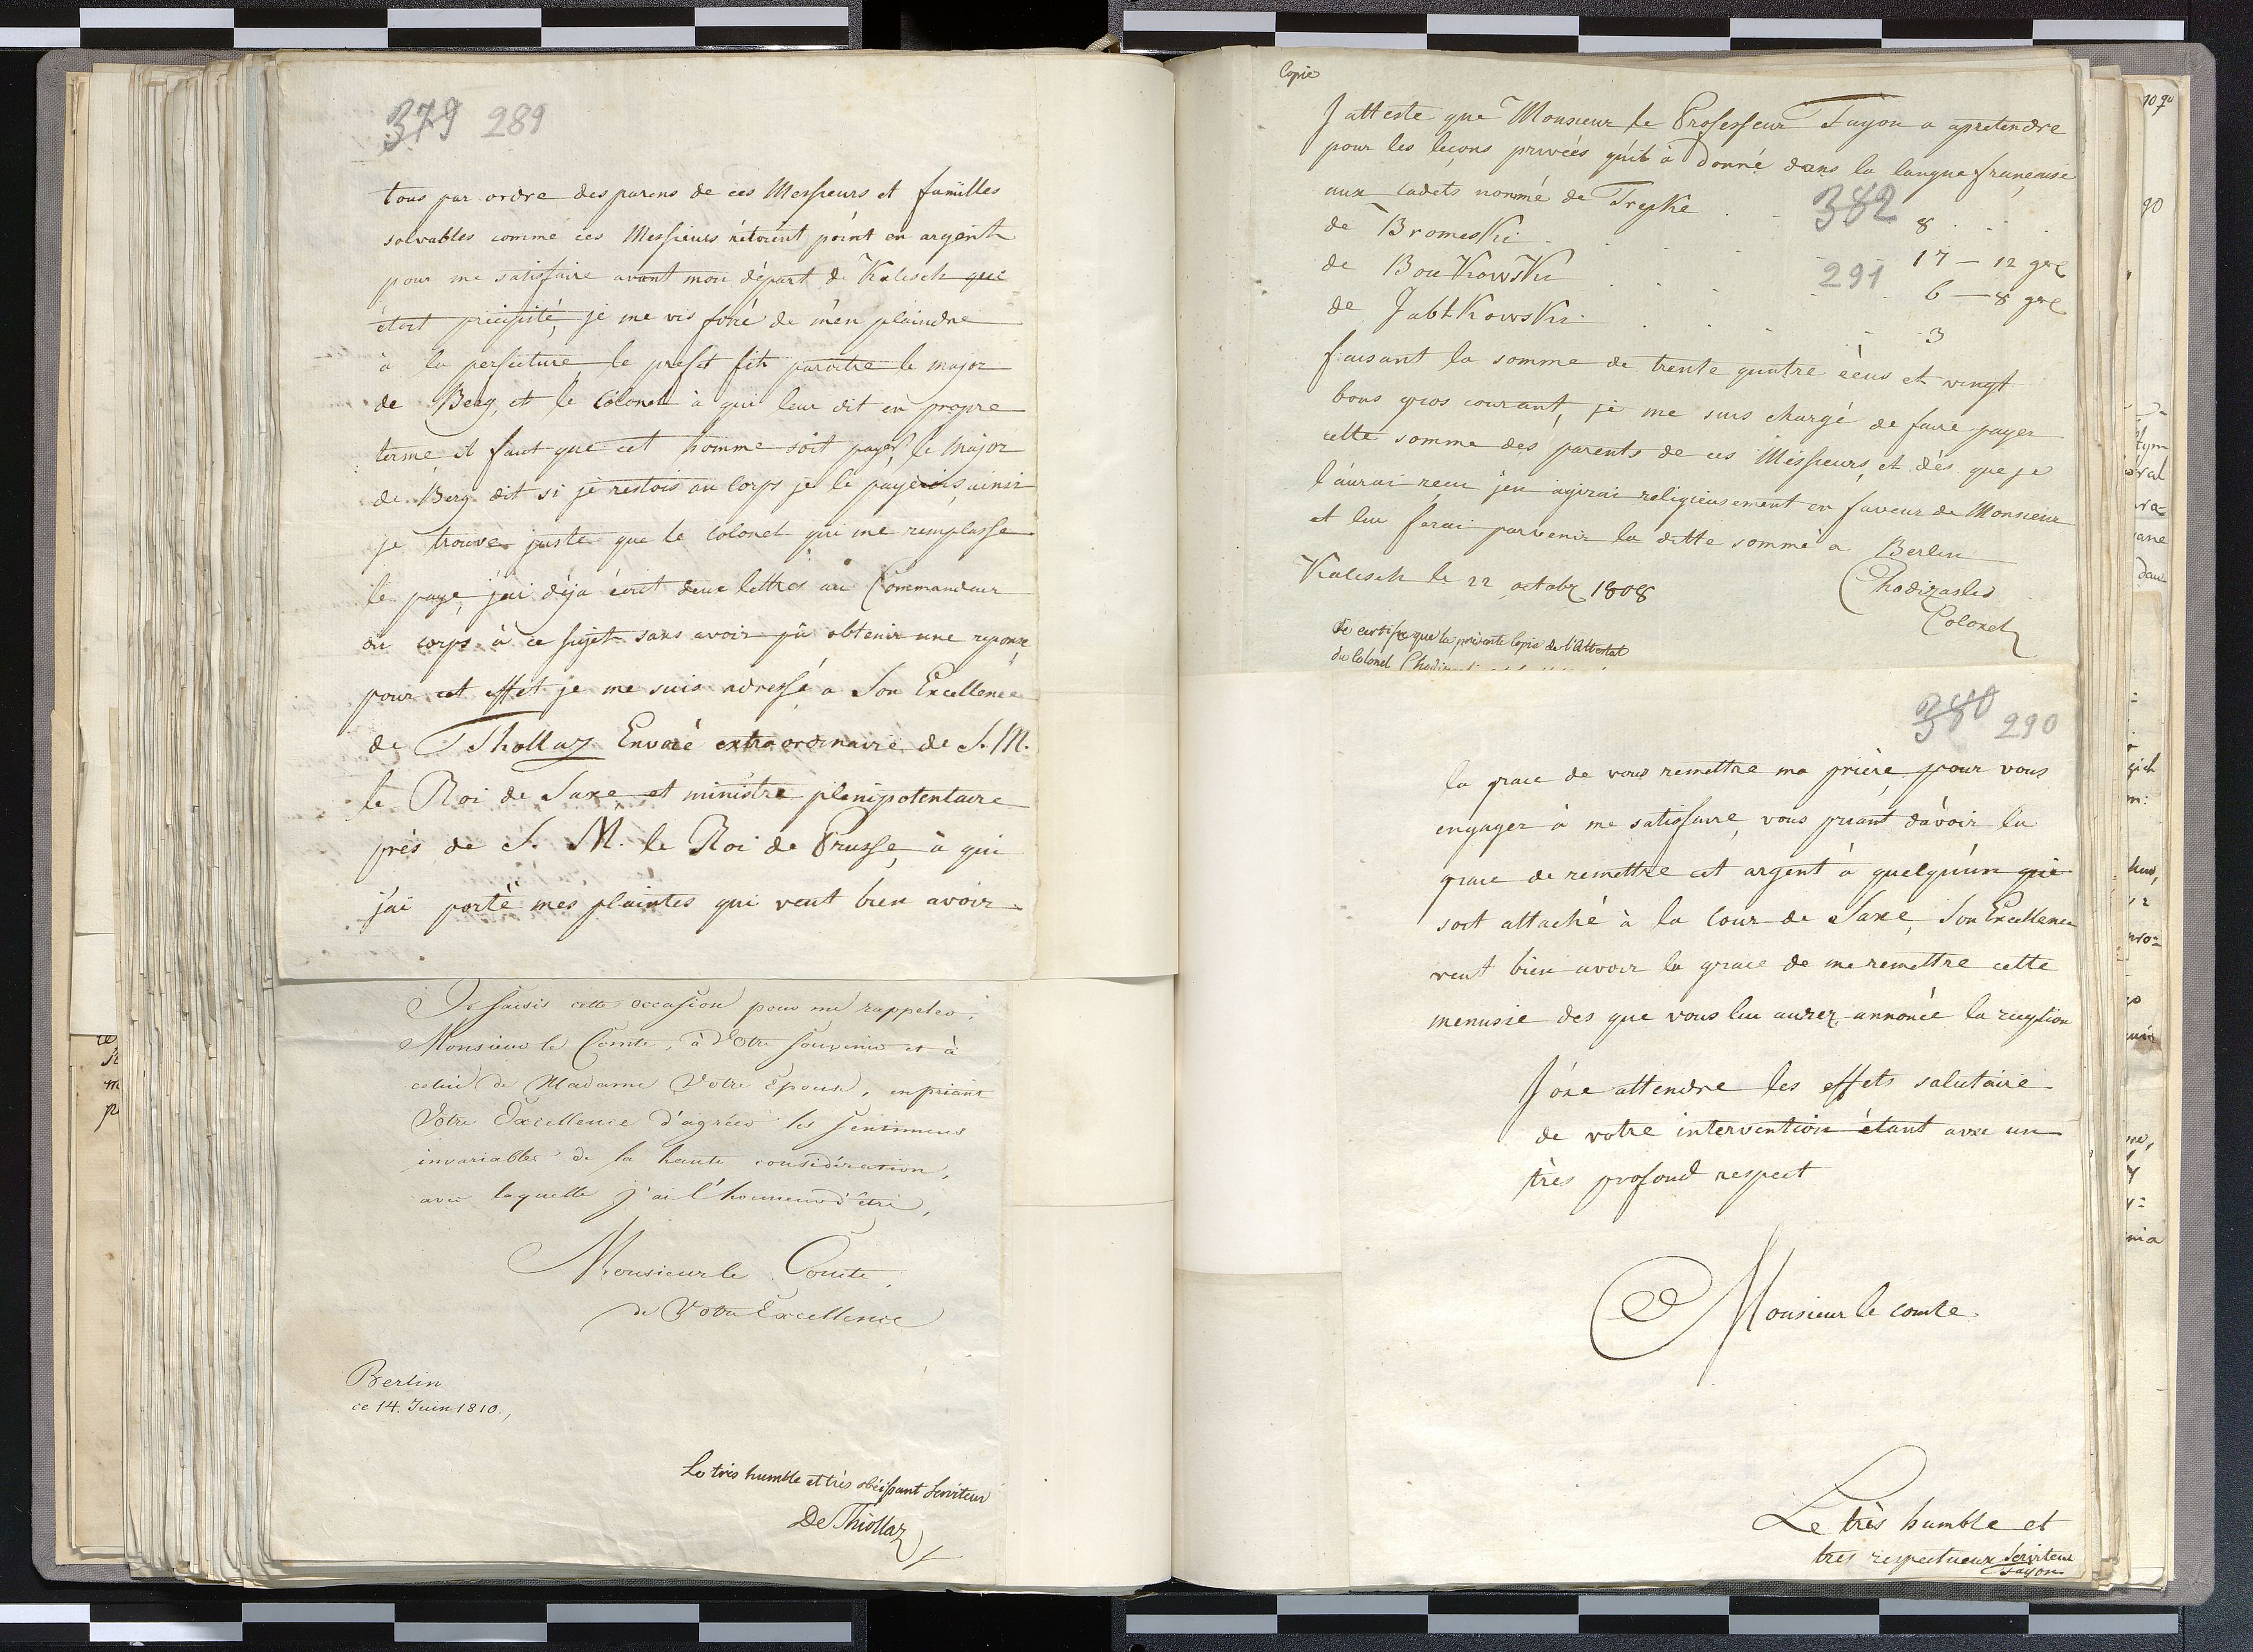 379 289
tous par ordre des parens de ces Messieurs et familles
solvables comme ces Messieurs n'étoient point en argent
pour me satisfaire avant mon départ de Kalisch qui
étoit précipité, je me vis forcé de m'en plaindre
à la perfecture, le prefet fit paroître le major
de Berg, et le Colonel à qui leur dit en propre
terme il faut que cet homme soit payer, le major
de Berg dit si je restois au Corps je le payerois, ainsi
je trouve juste que le Colonel qui me remplasse
le paye, j'ai déja écrit deux lettres au Commandeur
du corps à ce sujet sans avoir pû obtenir une reponse,
pour cet effet je me suis adressé a Son Excellence
de Thollaz Envoié extraordinaire de S. M.
le Roi de Saxe et ministre plenipotentaire
près de S. M. le Roi de Prusse, à qui
j'ai porté mes plaintes qui veut bien avoir
Je saisis cette occasion pour me rappeler,
Monsieur le Comte, à Votre souvenir et à
celui de Madame Votre Epouse, en priant
Votre Excellence d'agréer les sentimens
invariables de la haute considération,
avec laquelle j'ai l'honneur d'être,
Monsieur le Comte,
de Votre Excellence
Berlin
ce 14. Juin 1810.,
Le très humble et très obéissant Serviteur
De Thiollaz
Copie
J'atteste que Monsieur le Professeur Fayon a apretendre
pour les leçons privées qu'il à donné dans la langue française
aux cadets nommé de Trepke . . 8 . .
382
de Bromeski . . . . 17 — 12 grl
de Boukowski . . . . 6 — 8 grl
291
de Jablkowski . . . . 3
faisant la somme de trente quatre écus et vingt
bons gros courant, je me suis chargé de faire payer
cette somme des parents de ces Messieurs, et dès que je
l'aurai reçu j'en agirai religieusement en faveur de Monsieur
et lui ferai parvenir la ditte somme a Berlin
Kalisch le 22 octobr 1808
Colonel
Je certifie que la présente Copie de l'Attestat
du Colonel
380 290
la grace de vous remettre ma prière, pour vous
engager à me satisfaire, vous priant d'avoir la
grace de remettre cet argent à quelqu'un qui
soit attaché à la Cour de Saxe, Son Excellence
veut bien avoir la grace de me remettre cette
des que vous lui aurez annoncé la reception
J'ôse attendre les effets salutaire
de votre intervention étant avec un
très profond respect
Monsieur le comte
Le très humble et
tres respectueux Serviteur
Fayon